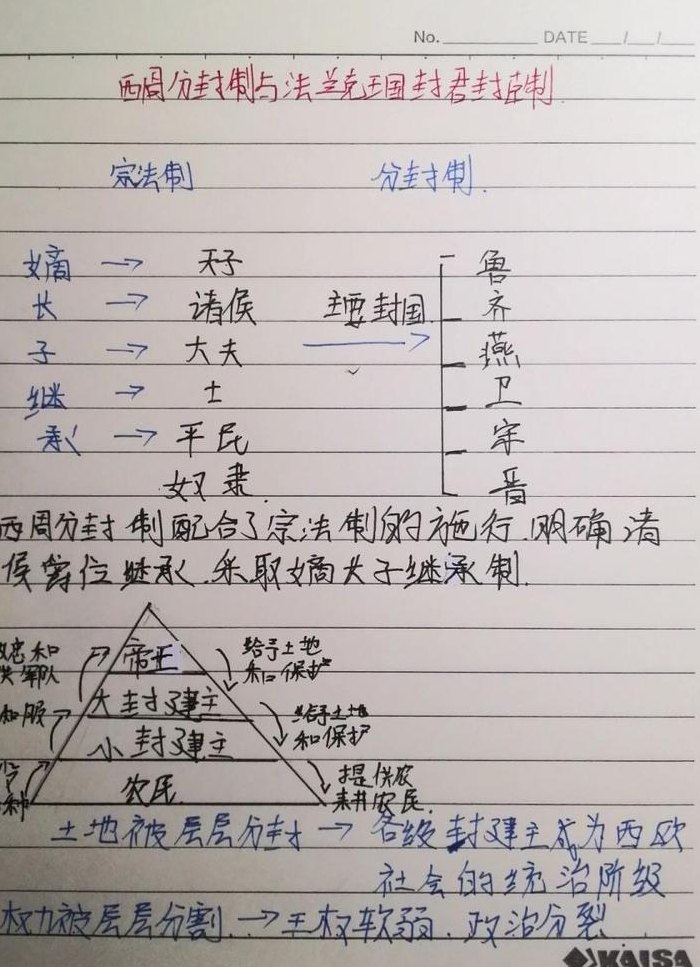 No. DATE / /
西周分封制与法兰克王国封君封臣制
宗法制 分封制.
嫡 → 天子 鲁
长 → 诸侯 主要封国 齐
子 → 大夫 → 燕
继 → 士 卫
承 → 平民 宋
奴隶. 晋
西周分封制配合了宗法制的施行.明确诸
侯爵位继承.采取嫡长子继承制.
忠和 帝王 给予土地
军队 和保护
和服 大封建主 给予土地
小封建主 和保护
农民. 提供农
种 耕农民.
土地被层层分封 → 各级封建主成为西欧
社会的统治阶级
权力被层层分割. → 王权软弱.政治分裂
KAISA